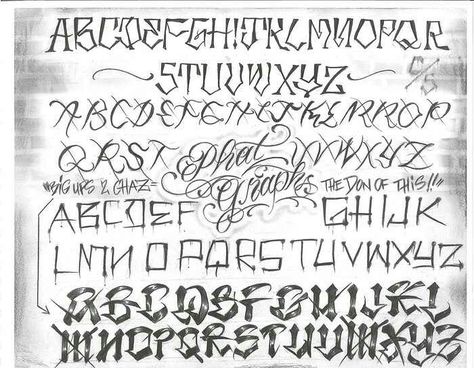 ABCDEFGHIJKLMNOPQR
STUVWXYZ
C/S
ABCDEFGHIJKLMNOP
QRST Phat Graphs UVWXYZ
"BIG UPS 2 CHAZ= THE DON OF THIS!!"
ABCDEF GHIJK
LMN OPQRSTUVWXYZ
ABCDEFGHIJKL
MNOPQRSTUVWXYZ